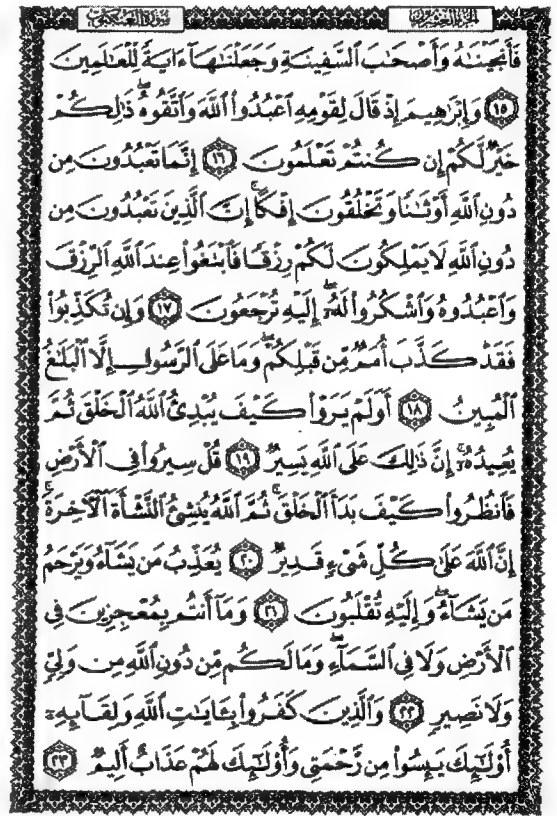 الجزء العشرون سورة العنكبوت
فَأَنجَيْنَٰهُ وَأَصْحَٰبَ ٱلسَّفِينَةِ وَجَعَلْنَٰهَآ ءَايَةً لِّلْعَٰلَمِينَ
١٥ وَإِبْرَٰهِيمَ إِذْ قَالَ لِقَوْمِهِ ٱعْبُدُوا۟ ٱللَّهَ وَٱتَّقُوهُ ۖ ذَٰلِكُمْ
خَيْرٌ لَّكُمْ إِن كُنتُمْ تَعْلَمُونَ ١٦ إِنَّمَا تَعْبُدُونَ مِن
دُونِ ٱللَّهِ أَوْثَٰنًا وَتَخْلُقُونَ إِفْكًا ۚ إِنَّ ٱلَّذِينَ تَعْبُدُونَ مِن
دُونِ ٱللَّهِ لَا يَمْلِكُونَ لَكُمْ رِزْقًا فَٱبْتَغُوا۟ عِندَ ٱللَّهِ ٱلرِّزْقَ
وَٱعْبُدُوهُ وَٱشْكُرُوا۟ لَهُۥٓ ۖ إِلَيْهِ تُرْجَعُونَ ١٧ وَإِن تُكَذِّبُوا۟
فَقَدْ كَذَّبَ أُمَمٌ مِّن قَبْلِكُمْ ۖ وَمَا عَلَى ٱلرَّسُولِ إِلَّا ٱلْبَلَٰغُ
ٱلْمُبِينُ ١٨ أَوَلَمْ يَرَوْا۟ كَيْفَ يُبْدِئُ ٱللَّهُ ٱلْخَلْقَ ثُمَّ
يُعِيدُهُۥٓ ۚ إِنَّ ذَٰلِكَ عَلَى ٱللَّهِ يَسِيرٌ ١٩ قُلْ سِيرُوا۟ فِى ٱلْأَرْضِ
فَٱنظُرُوا۟ كَيْفَ بَدَأَ ٱلْخَلْقَ ۚ ثُمَّ ٱللَّهُ يُنشِئُ ٱلنَّشْأَةَ ٱلْءَاخِرَةَ ۚ
إِنَّ ٱللَّهَ عَلَىٰ كُلِّ شَىْءٍ قَدِيرٌ ٢٠ يُعَذِّبُ مَن يَشَآءُ وَيَرْحَمُ
مَن يَشَآءُ ۖ وَإِلَيْهِ تُقْلَبُونَ ٢١ وَمَآ أَنتُم بِمُعْجِزِينَ فِى
ٱلْأَرْضِ وَلَا فِى ٱلسَّمَآءِ ۖ وَمَا لَكُم مِّن دُونِ ٱللَّهِ مِن وَلِىٍّ
وَلَا نَصِيرٍ ٢٢ وَٱلَّذِينَ كَفَرُوا۟ بِـَٔايَٰتِ ٱللَّهِ وَلِقَآئِهِۦٓ
أُو۟لَٰٓئِكَ يَئِسُوا۟ مِن رَّحْمَتِى وَأُو۟لَٰٓئِكَ لَهُمْ عَذَابٌ أَلِيمٌ ٢٣